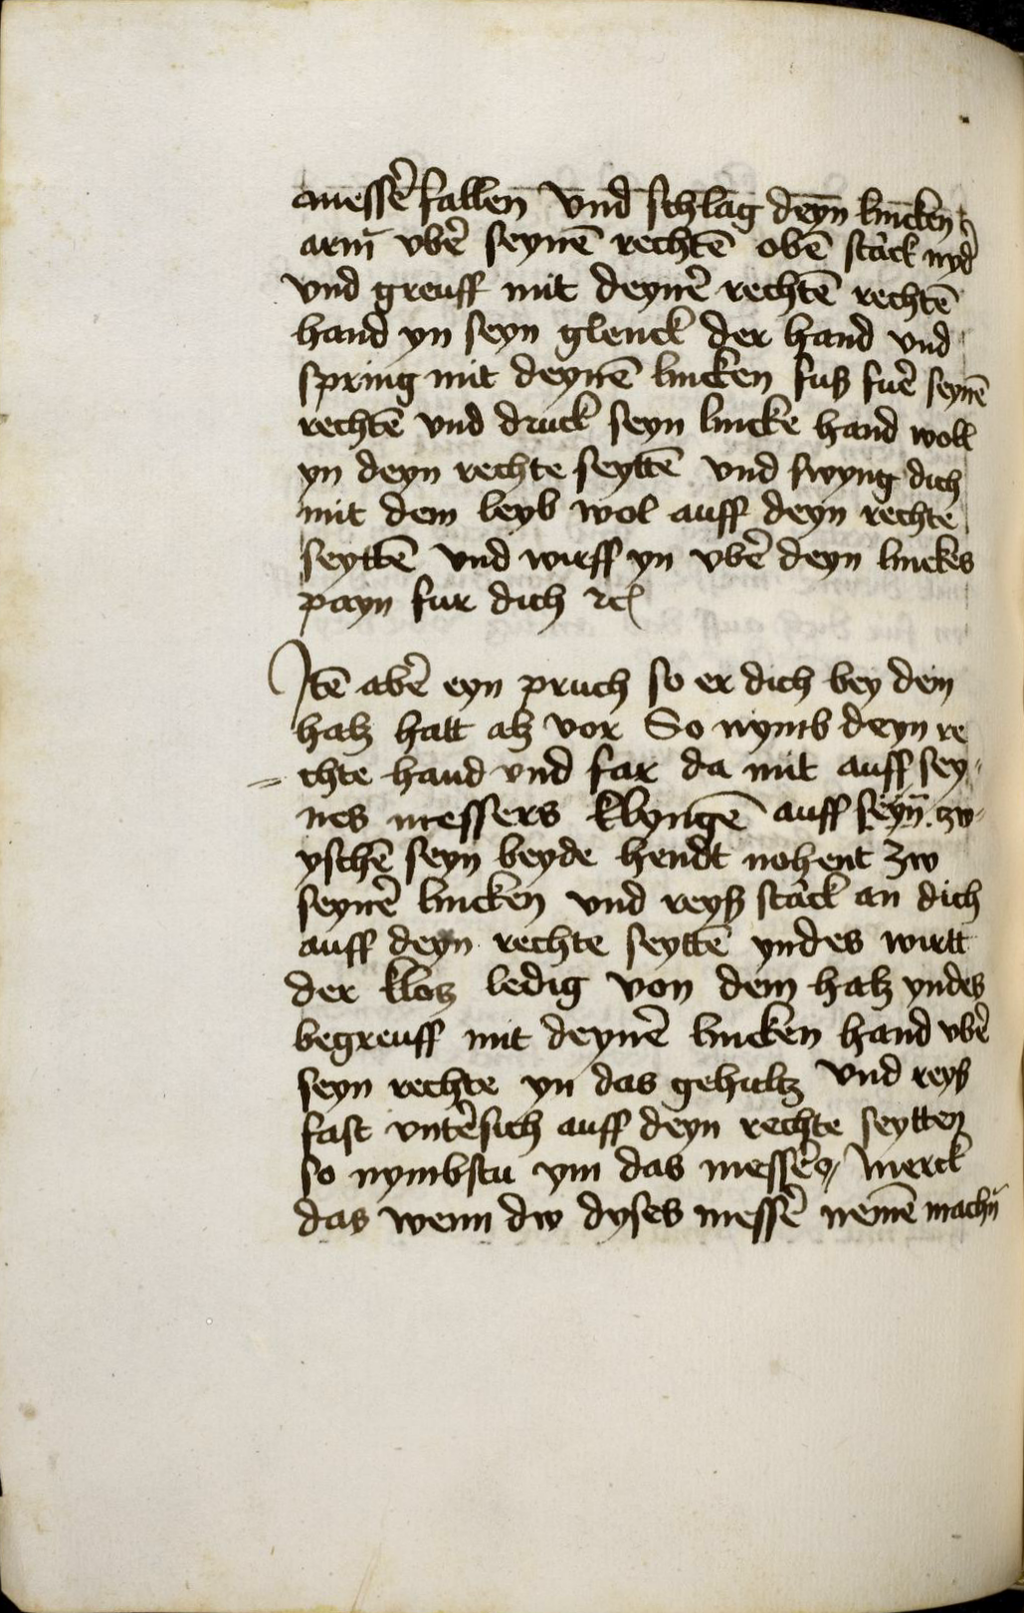 messer̄ fallen vnd schlag deyn lincken
arm̄ vber̄ seynē rechtē obē starck nyder̄
vnd greuff mit deyner̄ rechtē rechtē
hand yn seyn glenck der hand vnd
spring mit deynē lincken fuß fuer̄ seynē
rechtē vnd druck seyn lincke hand woll
yn deyn rechte seyttē vnd swyng dich
mit dem leyb wol auff deyn rechte
seyttē vnd wirff yn vber̄ deyn linckes
payn fur dich ⁊c
Itē aber̄ eyn pruch so er dich bey dem
halz hatt alz vor So nymb deyn re
= chte hand vnd far da mit auff sey„
nes messers klyngē auff seyn̄ zw„
yschē seyn beyde hendt nohent zw
seyner̄ lincken vnd reyß starck an dich
auff deyn rechte seyttē yndes wirtt
der kloz ledig von dem halz yndes
begreuff mit deyner̄ lincken hand vber̄
seyn rechte yn das gehultz vnd reyß
fast vnter̄sich auff deyn rechte seytten
so nymbstu ym das messer̄ Merck
das wenn dw dyses messer̄ nemē machn̄